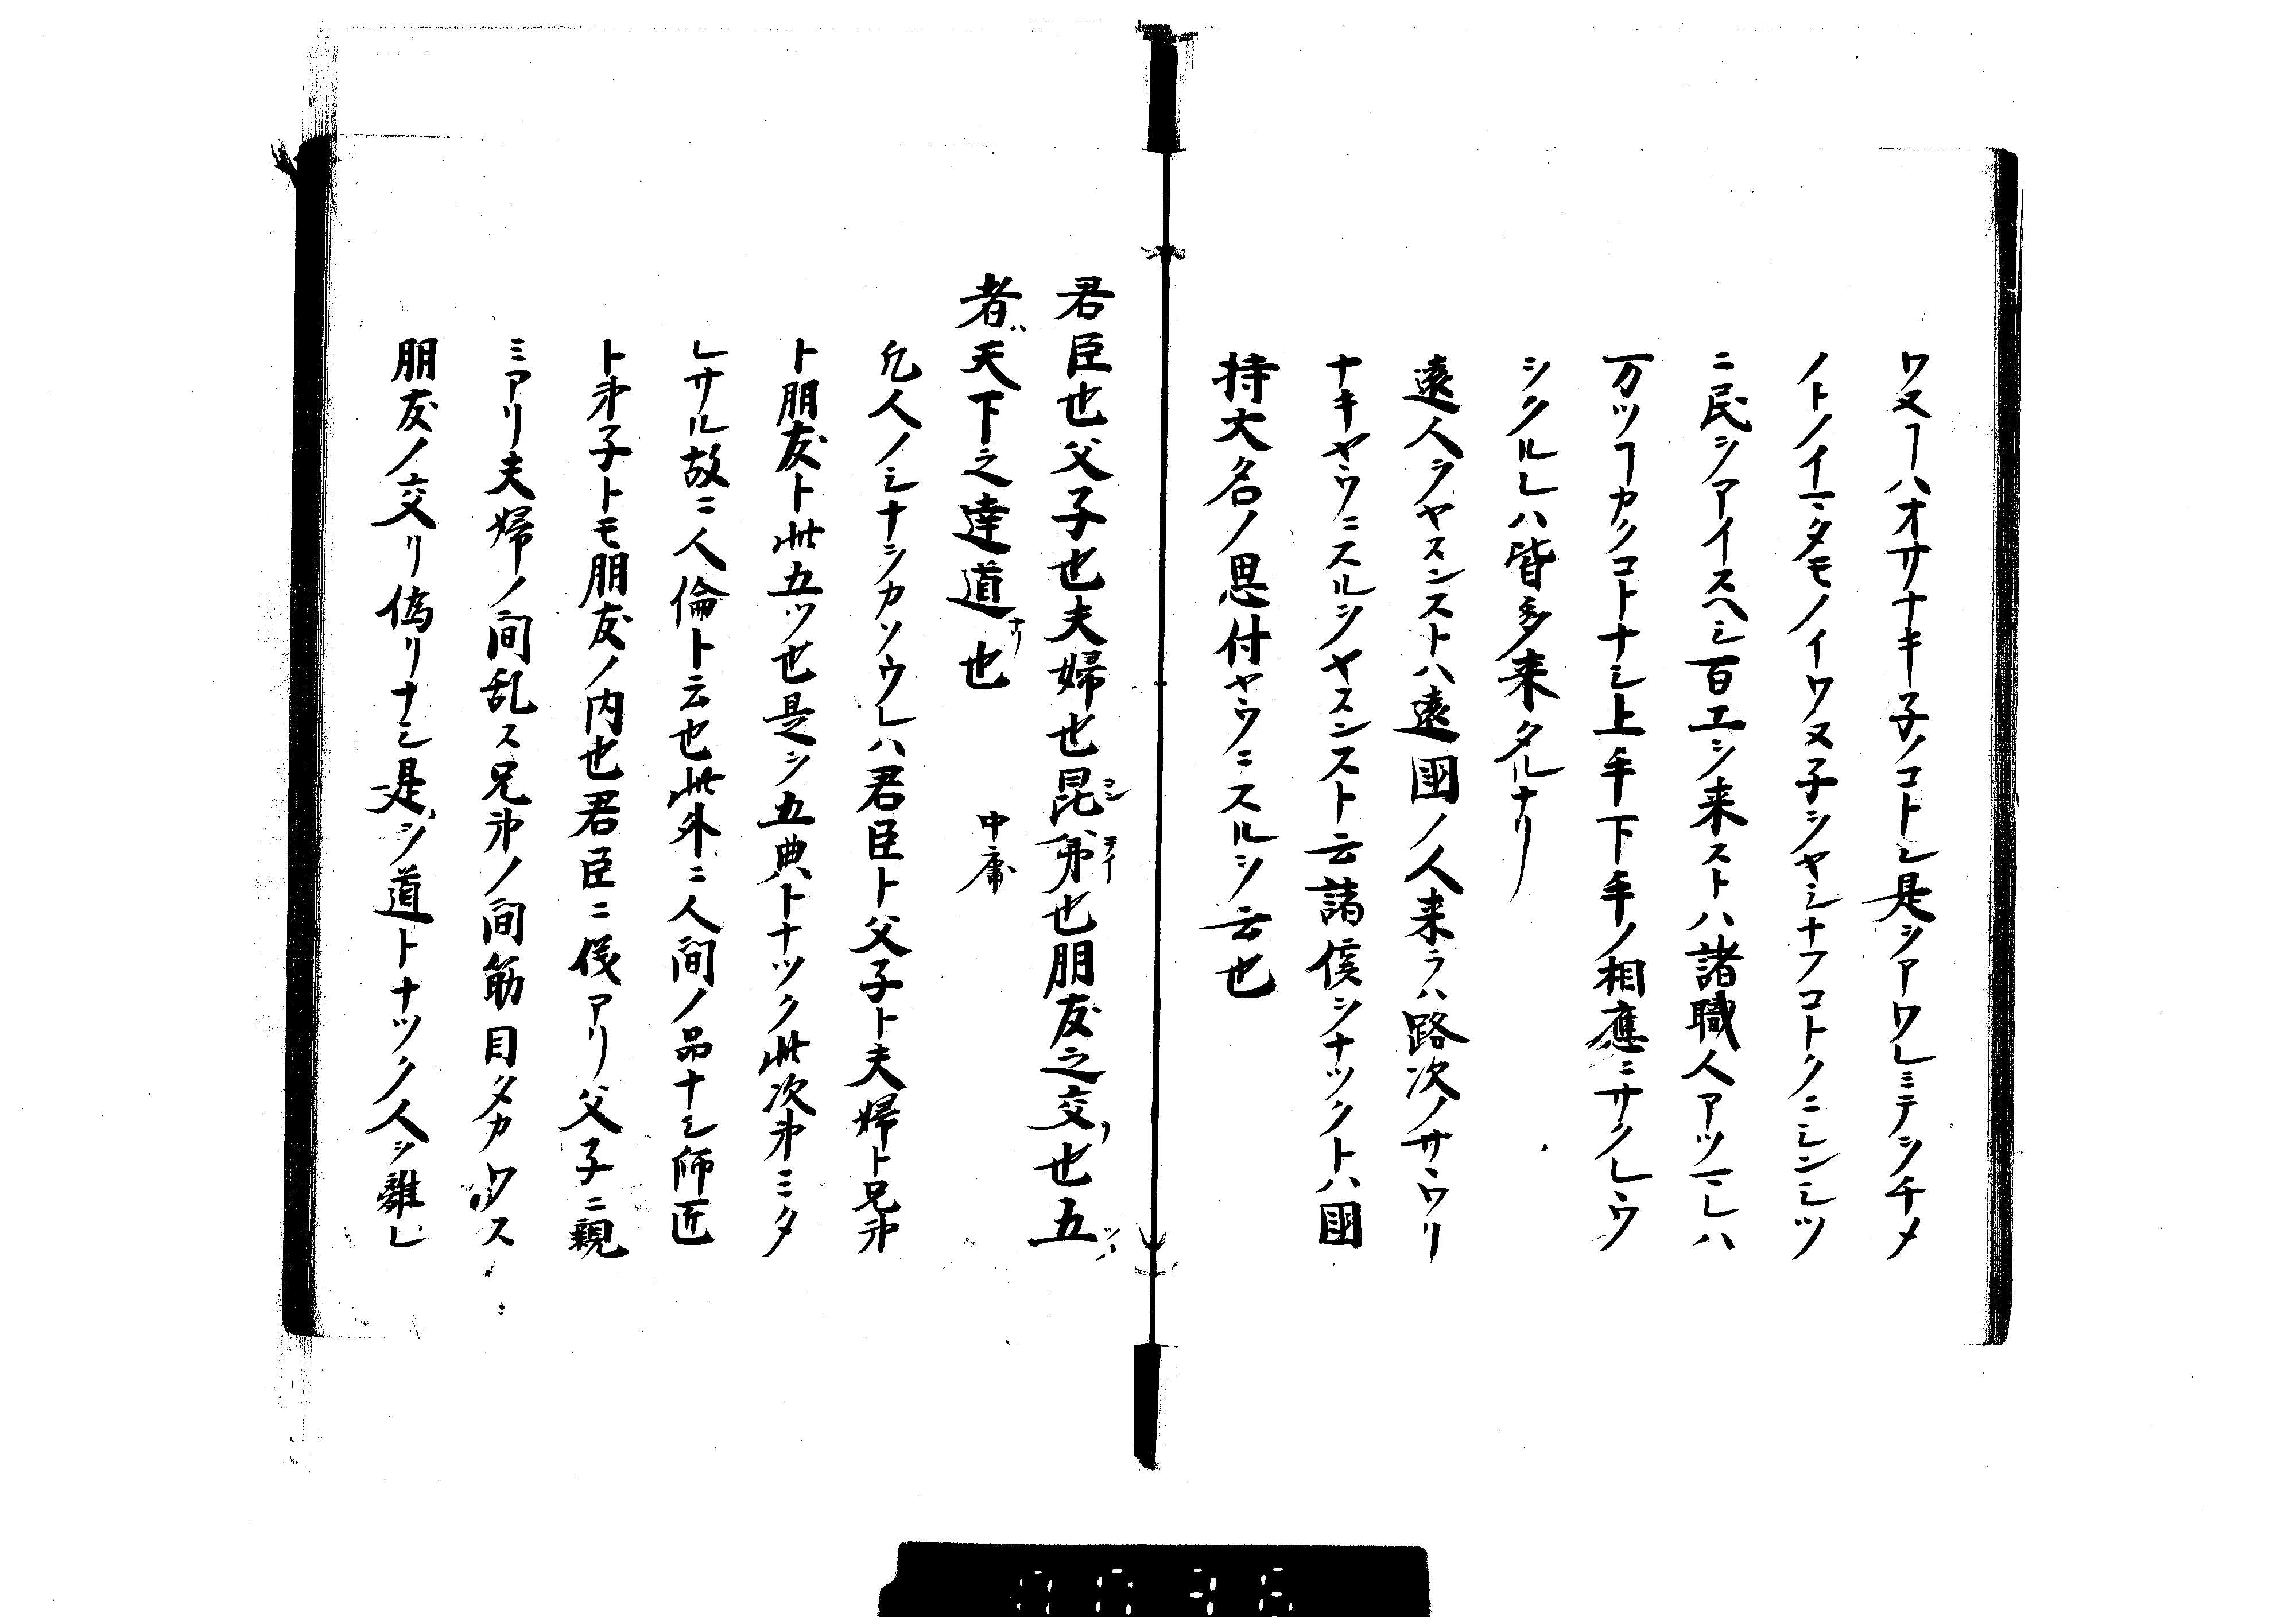 ワヌーハオサナキ子ノコトレ是シアワレミテシチメ
ノトノイマタモノイワヌ子シヤシナフコトクニシンシツ
ニ民シアイスヘシ百工シ来ストハ諸職人アツマレハ
万ツーカクコトナシ上手下手ノ相應ニサクレウ
シクルレハ皆多来タルナリ
遠人シヤスンストハ遠国ノ人来ラハ路次ノサワリ
ナキヤウニスルシヤスンスト云諸侯シナツクトハ国
持大名ノ思付ヤウニスルシ云也
君臣也父子也夫婦也昆弟也朋友之交也五
者天下之達道也 中庸
凡人ノシナシカソウレハ君臣ト父子ト夫婦ト兄弟
ト朋友ト此五ツ也是シ五典トナツク此次第ミタ
レサル故ニ人倫ト云也此外ニ人間ノ品ナシ師匠
ト弟子トモ朋友ノ内也君臣ニ儀アリ父子ニ親
ミアリ夫婦ノ間乱ス兄弟ノ間筋目タカワス
朋友ノ交リ偽リナシ是シ道トナツク人シ離レ